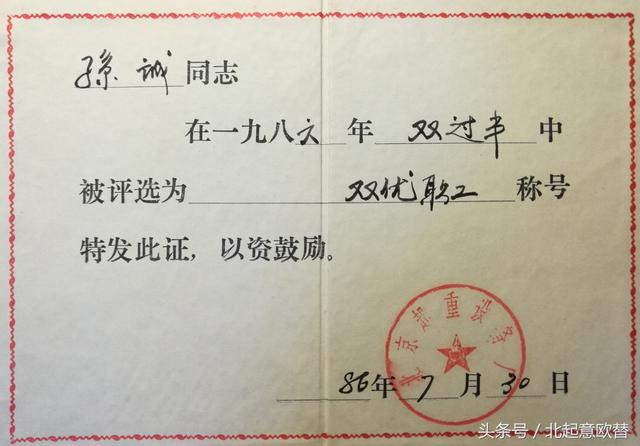 孫诚同志
在一九八六年双过半中
被评选为双优职工称号
特发此证，以资鼓励。
北京起重设备厂
86年7月30日
头条号／北起意欧替